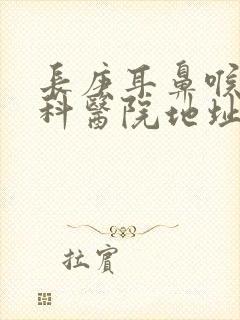 長庚耳鼻喉
科醫院地址
拉賓